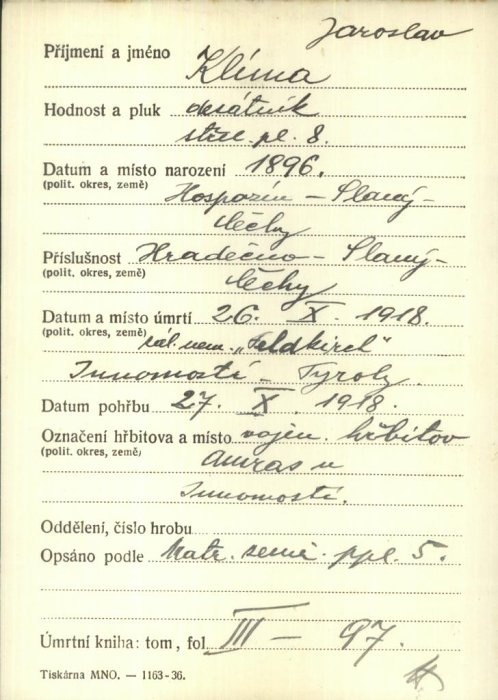 Jaroslav
Příjmení a jméno Klíma
Hodnost a pluk desátník
střel. pl. 8.
Datum a místo narození 1896.
(polit. okres, země)
Hospozín – Slaný –
Čechy
Příslušnost Hradečno – Slaný –
(polit. okres, země)
Čechy
Datum a místo úmrtí 26. X. 1918.
(polit. okres, země) zál. nem. „Feldkirch“
Innomostí – Tyroly.
Datum pohřbu 27. X. 1918.
Označení hřbitova a místo vojen. hřbitov
(polit. okres, země)
Amras u
Innomostí.
Oddělení, číslo hrobu
Opsáno podle Matr. zemř. ppl. 5.
Úmrtní kniha: tom, fol. III – 97.
Tiskárna MNO. — 1163-36.